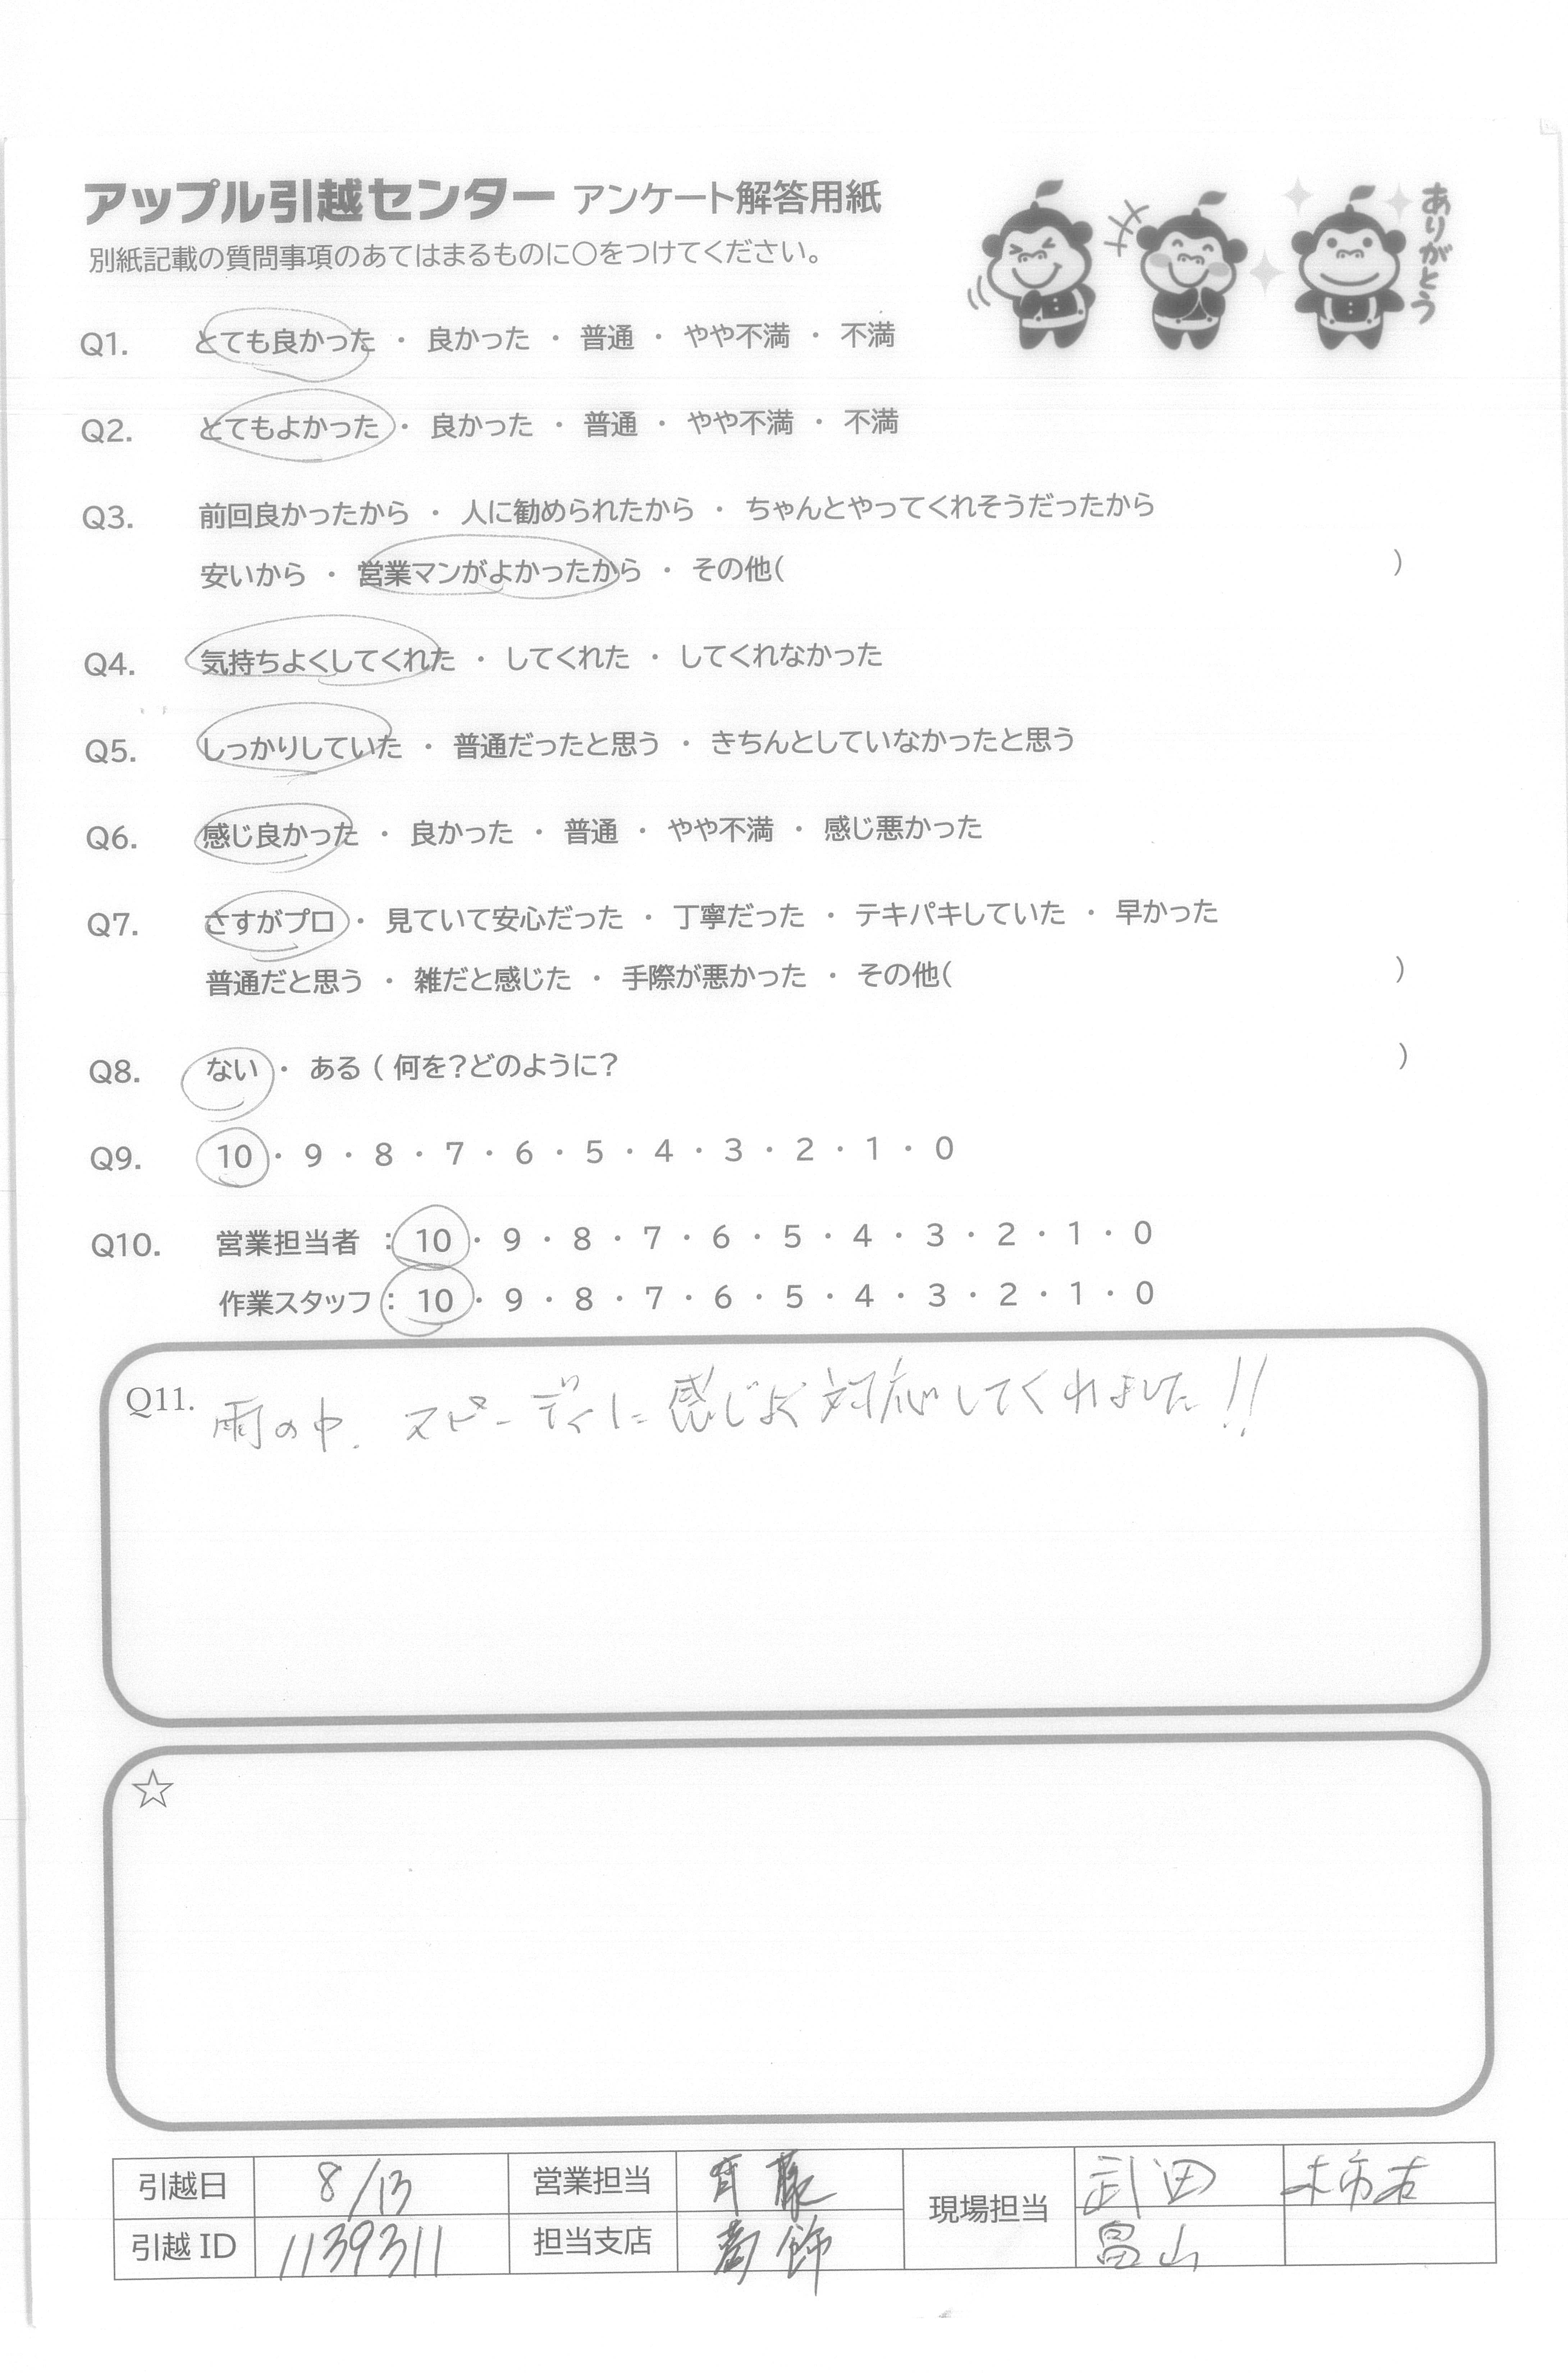 アップル引越センター アンケート解答用紙
ありがとう
別紙記載の質問事項のあてはまるものに○をつけてください。
Q1. とても良かった ・ 良かった ・ 普通 ・ やや不満 ・ 不満
Q2. とてもよかった ・ 良かった ・ 普通 ・ やや不満 ・ 不満
Q3. 前回良かったから ・ 人に勧められたから ・ ちゃんとやってくれそうだったから
安いから ・ 営業マンがよかったから ・ その他( )
Q4. 気持ちよくしてくれた ・ してくれた ・ してくれなかった
Q5. しっかりしていた ・ 普通だったと思う ・ きちんとしていなかったと思う
Q6. 感じ良かった ・ 良かった ・ 普通 ・ やや不満 ・ 感じ悪かった
Q7. さすがプロ ・ 見ていて安心だった ・ 丁寧だった ・ テキパキしていた ・ 早かった
普通だと思う ・ 雑だと感じた ・ 手際が悪かった ・ その他( )
Q8. ない ・ ある ( 何を?どのように? )
Q9. 10 ・ 9 ・ 8 ・ 7 ・ 6 ・ 5 ・ 4 ・ 3 ・ 2 ・ 1 ・ 0
Q10. 営業担当者 : 10 ・ 9 ・ 8 ・ 7 ・ 6 ・ 5 ・ 4 ・ 3 ・ 2 ・ 1 ・ 0
作業スタッフ : 10 ・ 9 ・ 8 ・ 7 ・ 6 ・ 5 ・ 4 ・ 3 ・ 2 ・ 1 ・ 0
Q11. 雨の中、スピーディに感じよく対応してくれました!!
☆
引越日 8/13 営業担当 斉藤 現場担当 武田
引越 ID 1139311 担当支店 葛飾 畠山